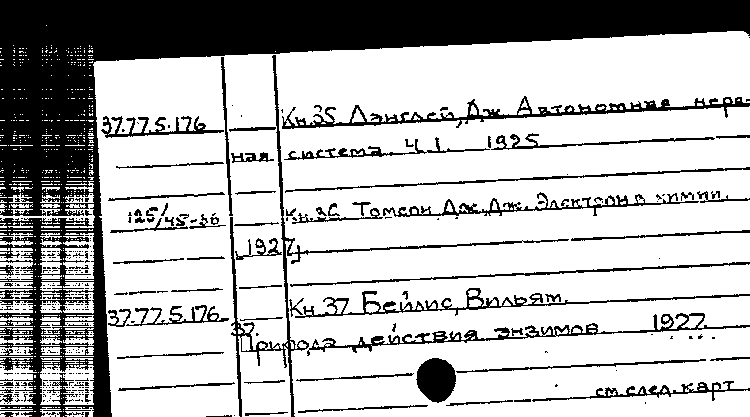 37.77.5.176 Кн.35 Лэнглей, Дж Автономная нерв-
ная система Ч.I. 1925
125/45-36 Кн.36 Томсон Дж.Дж. Электрон в химии.
[1927]
37.77.5.176- Кн 37 Бейлис, Вильям.
37. Природа действия энзимов. 1927.
см.след.карт